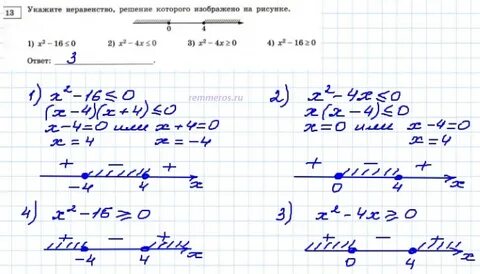 13 Укажите неравенство, решение которого изображено на рисунке.
0 4
1) x² − 16 ≤ 0 2) x² − 4x ≤ 0 3) x² − 4x ≥ 0 4) x² − 16 ≥ 0
Ответ: 3
remmeros.ru
1) x² − 16 ≤ 0
(x − 4)(x + 4) ≤ 0
x − 4 = 0 или x + 4 = 0
x = 4 x = −4
+ − +
−4 4 x
2) x² − 4x ≤ 0
x(x − 4) ≤ 0
x = 0 или x − 4 = 0
x = 4
+ − +
0 4 x
4) x² − 16 ≥ 0
+ − +
−4 4 x
3) x² − 4x ≥ 0
+ − +
0 4 x